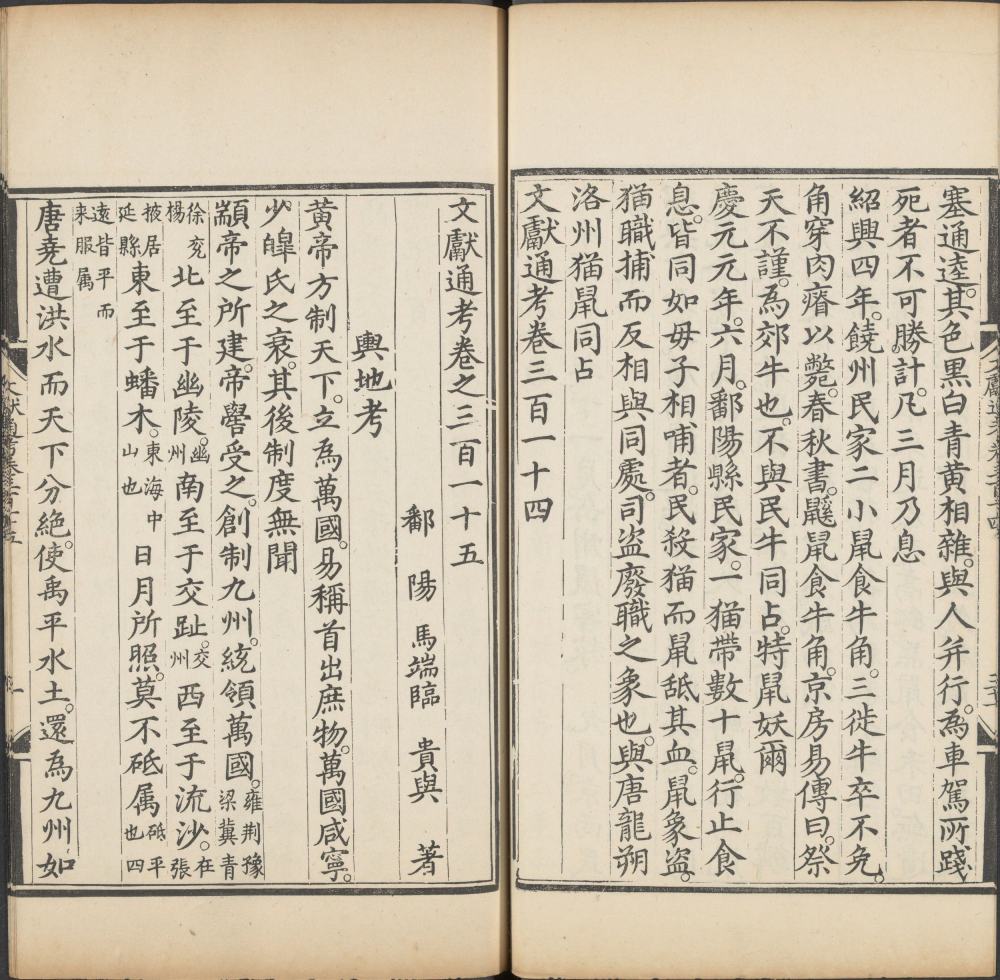 塞通逵。其色黑白青黃相雜。與人并行。為車駕所踐
死者不可勝計。凡三月乃息
紹興四年。饒州民家二小鼠食牛角。三徙牛卒不免。
角穿肉瘠以斃。春秋書。鼷鼠食牛角。京房易傳曰。祭
天不謹。為郊牛也。不與民牛同占。特鼠妖爾
慶元元年。六月。鄱陽縣民家。一猫帶數十鼠。行止食
息。皆同如母子相哺者。民殺猫而鼠舐其血。鼠象盜。
猫職捕而反相與同處。司盜廢職之象也。與唐龍朔
洛州猫鼠同占
文獻通考卷三百一十四
文獻通考卷之三百一十五
鄱陽馬端臨貴與著
輿地考
黃帝方制天下。立為萬國。易稱首出庶物。萬國咸寧。
少皥氏之衰。其後制度無聞
顓帝之所建。帝嚳受之。創制九州。統領萬國。雍荆豫
梁冀青
徐兗
楊
北至于幽陵。幽
州
南至于交趾。交
州
西至于流沙。在
張
掖居
延縣
東至于蟠木。東海中
山也
日月所照。莫不砥属砥平
也四
遠皆平而
来服属
唐堯遭洪水而天下分絶。使禹平水土。還為九州如